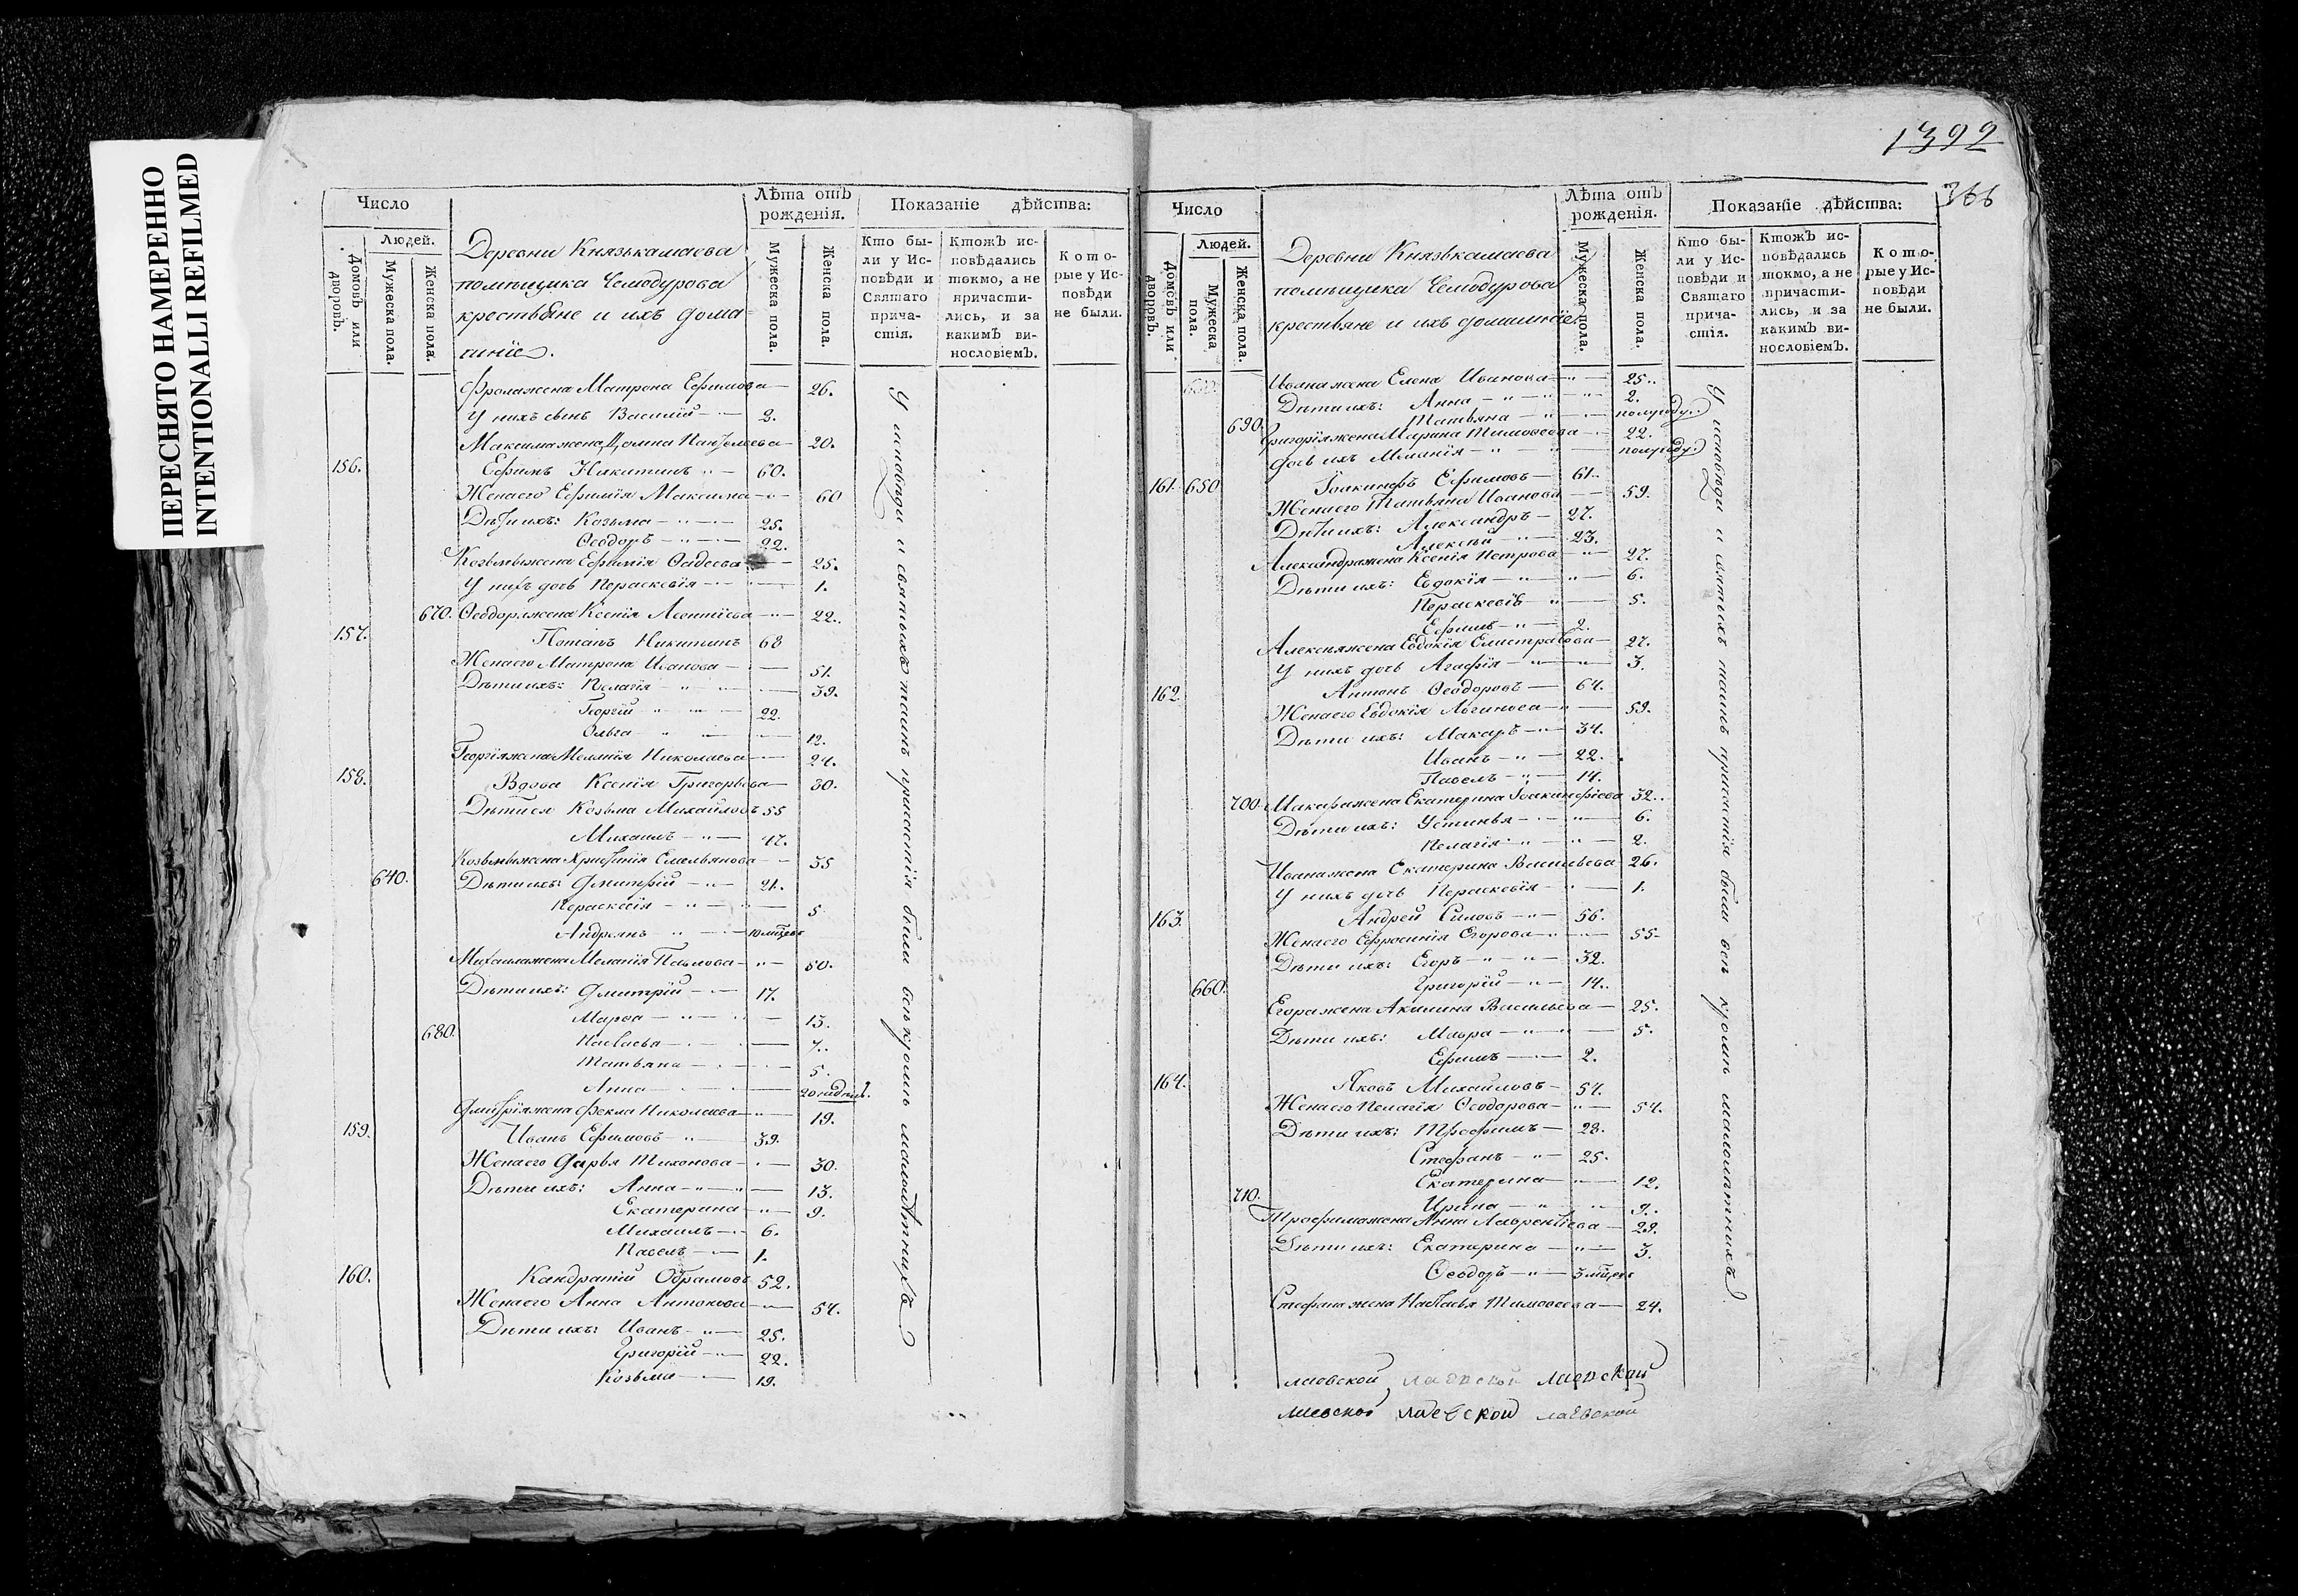 ПЕРЕСНЯТО НАМЕРЕННО
INTENTIONALLI REFILMED
Число
Людей.
Домовъ или дворовъ.
Мужеска пола.
Женска пола.
Деревни Князькамаева
помѣщика Чемодурова
крестьяне и ихъ дома-
шніе.
Лѣта отъ рожденія.
Мужеска пола.
Женска пола.
Показаніе дѣйства:
Кто бы-
ли у Ис-
повѣди и
Святаго
прича-
стія.
Ктожъ ис-
повѣдались
токмо, а не
причасти-
лись, и за
какимъ ви-
нословіемъ.
Кото-
рые у Ис-
повѣди
не были.
Фрола жена Матрона Ефимова 26.
У нихъ сынъ Василій 2.
Максима жена Домна 20.
156. Ефимъ Никитинъ 60.
Жена его Ефимія Максима 60
Дѣти их: Козьма 25.
Ѳеодоръ 22.
Козьмы жена Ефимія Фадеева 25.
У нихъ дочь Параскевія 1.
670. Ѳеодора жена Ксенія Леонтіева 22.
157. Потапъ Никитинъ 68
Жена его Матрона Иванова 51.
Дѣти ихъ: Пелагія 39.
Георгій 22.
Ольга 12.
Георгія жена Меланія Николаева 24.
158. Вдова Ксенія Григорьева 80.
Дѣти ея Козьма Михайловъ 55
Михаилъ 47.
Козьмы жена Христинія Емельянова 55
640. Дѣти ихъ: Дмитрій 21.
Параскевія 5
Андреянъ 10 мѣсец
Михаила жена Меланія Павлова 50.
Дѣти ихъ: Дмитрій 17.
Марѳа 13.
680. 7.
Татьяна 5.
Анна 20 недель.
Дмитрія жена Фекла Николаева 19.
159. Иванъ Ефимовъ 39.
Жена его Дарья Тихонова 30.
Дѣти ихъ: Анна 13.
Екатерина 9.
Михаилъ 6.
Павелъ 1.
160. Кандратій Обрамовъ 52.
Жена его Анна Антонова 54.
Дѣти ихъ: Иванъ 25.
Григорій 22.
Козьма 19.
У исповѣди и святыхъ таинъ причастія были всѣ кромѣ малолѣтнихъ
1392
366
Число
Людей.
Домовъ или дворовъ.
Мужеска пола.
Женска пола.
Деревни Князькамаева
помѣщика Чемодурова
крестьяне и ихъ домашніе.
Лѣта отъ рожденія.
Мужеска пола.
Женска пола.
Показаніе дѣйства:
Кто бы-
ли у Ис-
повѣди и
Святаго
прича-
стія.
Ктожъ ис-
повѣдались
токмо, а не
причасти-
лись, и за
какимъ ви-
нословіемъ.
Кото-
рые у Ис-
повѣди
не были.
Ивана жена Елена Иванова 25.
Дѣти ихъ: Анна 2.
690. Татьяна полугоду.
Григорія жена Марина Тимоѳеева 22.
Дочь ихъ Меланія полугоду.
161. 650 Іоакинфъ Ефимовъ 61.
Жена его Татьяна Иванова 59.
Дѣти ихъ: Александръ 27.
Алексѣй 23.
Александра жена Ксенія Петрова 27.
Дѣти ихъ: Евдокія 6.
Параскевія 5.
Ефимъ 2.
Алексѣя жена Евдокія Елистратова 27.
У нихъ дочь Агафія 3.
162. Антонъ Ѳеодоровъ 64.
Жена его Евдокія Логинова 59.
Дѣти ихъ: Макаръ 34.
Иванъ 22.
Павелъ 14.
700. Макара жена Екатерина Іоакинфіева 32.
Дѣти ихъ: Устинья 6.
Пелагія 2.
Ивана жена Екатерина Васильева 26.
У нихъ дочь Параскевія 1.
163. Андрей Силовъ 56.
Жена его Ефросинія Егорова 55
Дѣти ихъ: Егоръ 32.
660. Григорій 14.
Егора жена Акилина Васильева 25.
Дѣти ихъ: Мавра 5.
Ефимъ 2.
164. Яковъ Михайловъ 54.
Жена его Пелагія Ѳеодорова 54.
Дѣти ихъ: Трофимъ 28.
Стефанъ 25.
Екатерина 12.
710. Ирина 9.
Трофима жена Анна Лаврентіева 29.
Дѣти ихъ: Екатерина 3.
Ѳеодоръ 3 мѣсец
Стефана жена Наталья Тимоѳеева 24.
У исповѣди и святыхъ таинъ причастія были всѣ кромѣ малолѣтнихъ
лаевской лаевской лаевской
лаевской лаевской лаевской